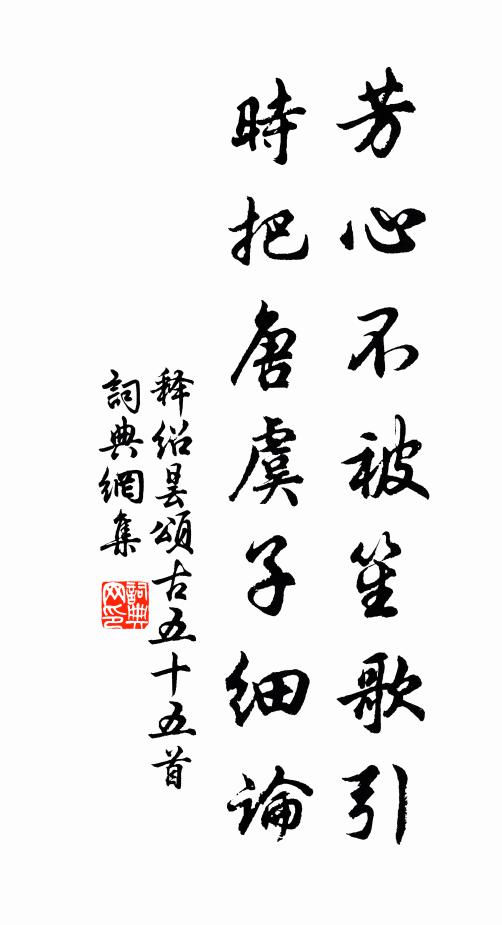 芳心不被笙歌引
時把唐虞子細論
释绍昙頌古五十五首
詞典網集
詞典網印